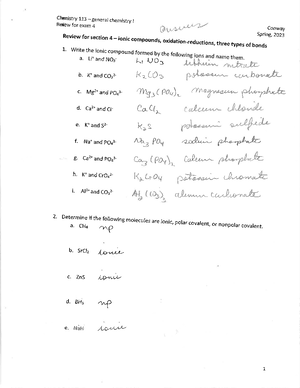 Chemistry 111 – general chemistry I Conway
Review for exam 4 answers Spring, 2023
Review for section 4 – ionic compounds, oxidation-reductions, three types of bonds
1. Write the ionic compound formed by the following ions and name them.
a. Li⁺ and NO₃⁻ LiNO₃ lithium nitrate
b. K⁺ and CO₃²⁻ K₂CO₃ potassium carbonate
c. Mg²⁺ and PO₄³⁻ Mg₃(PO₄)₂ magnesium phosphate
d. Ca²⁺ and Cl⁻ CaCl₂ calcium chloride
e. K⁺ and S²⁻ K₂S potassium sulfide
f. Na⁺ and PO₄³⁻ Na₃PO₄ sodium phosphate
g. Ca²⁺ and PO₄³⁻ Ca₃(PO₄)₂ calcium phosphate
h. K⁺ and CrO₄²⁻ K₂CrO₄ potassium chromate
i. Al³⁺ and CO₃²⁻ Al₂(CO₃)₃ carbonate
2. Determine if the following molecules are ionic, polar covalent, or nonpolar covalent.
a. CH₄ np
b. SrCl₂ ionic
c. ZnS ionic
d. BH₃ np
e. ionic
1